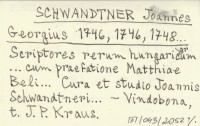 SCHWANDTNER Joannes
Georgius 1746, 1746, 1748...
Scriptores rerum hungaricar̃
... cum praefatione Matthiae
Beli... Cura et studio Joannis
Schwandtneri... – Vindobona,
t. J. P. Kraus.